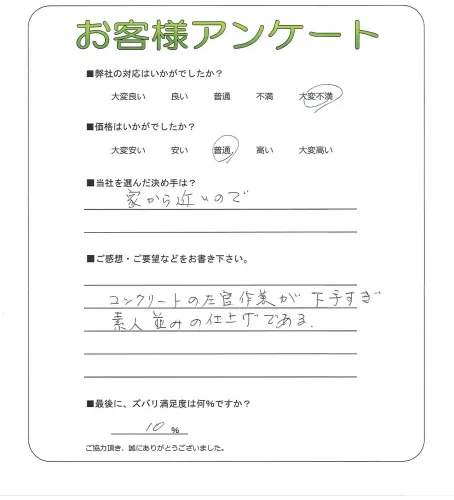 お客様アンケート
■弊社の対応はいかがでしたか？
大変良い 良い 普通 不満 大変不満
■価格はいかがでしたか？
大変安い 安い 普通 高い 大変高い
■当社を選んだ決め手は？
家から近いので
■ご感想・ご要望などをお書き下さい。
コンクリートの左官作業が下手すぎ
素人並みの仕上げである.
■最後に、ズバリ満足度は何%ですか？
10 %
ご協力頂き、誠にありがとうございました。